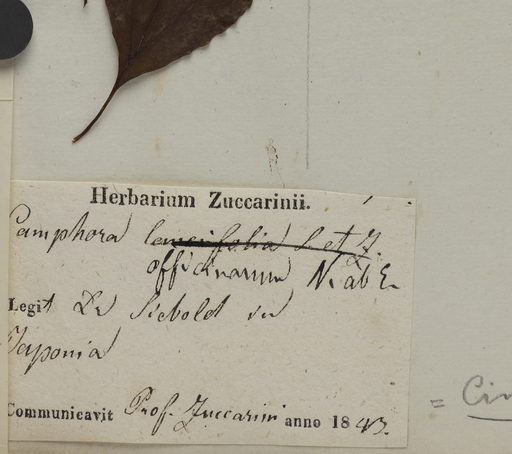 Herbarium Zuccarinii.
Camphora S. et Z.
officinarum N. ab E.
Legit Dr Siebold in
Japonia
Communicavit Prof. Zuccarini anno 1843.
= Cin